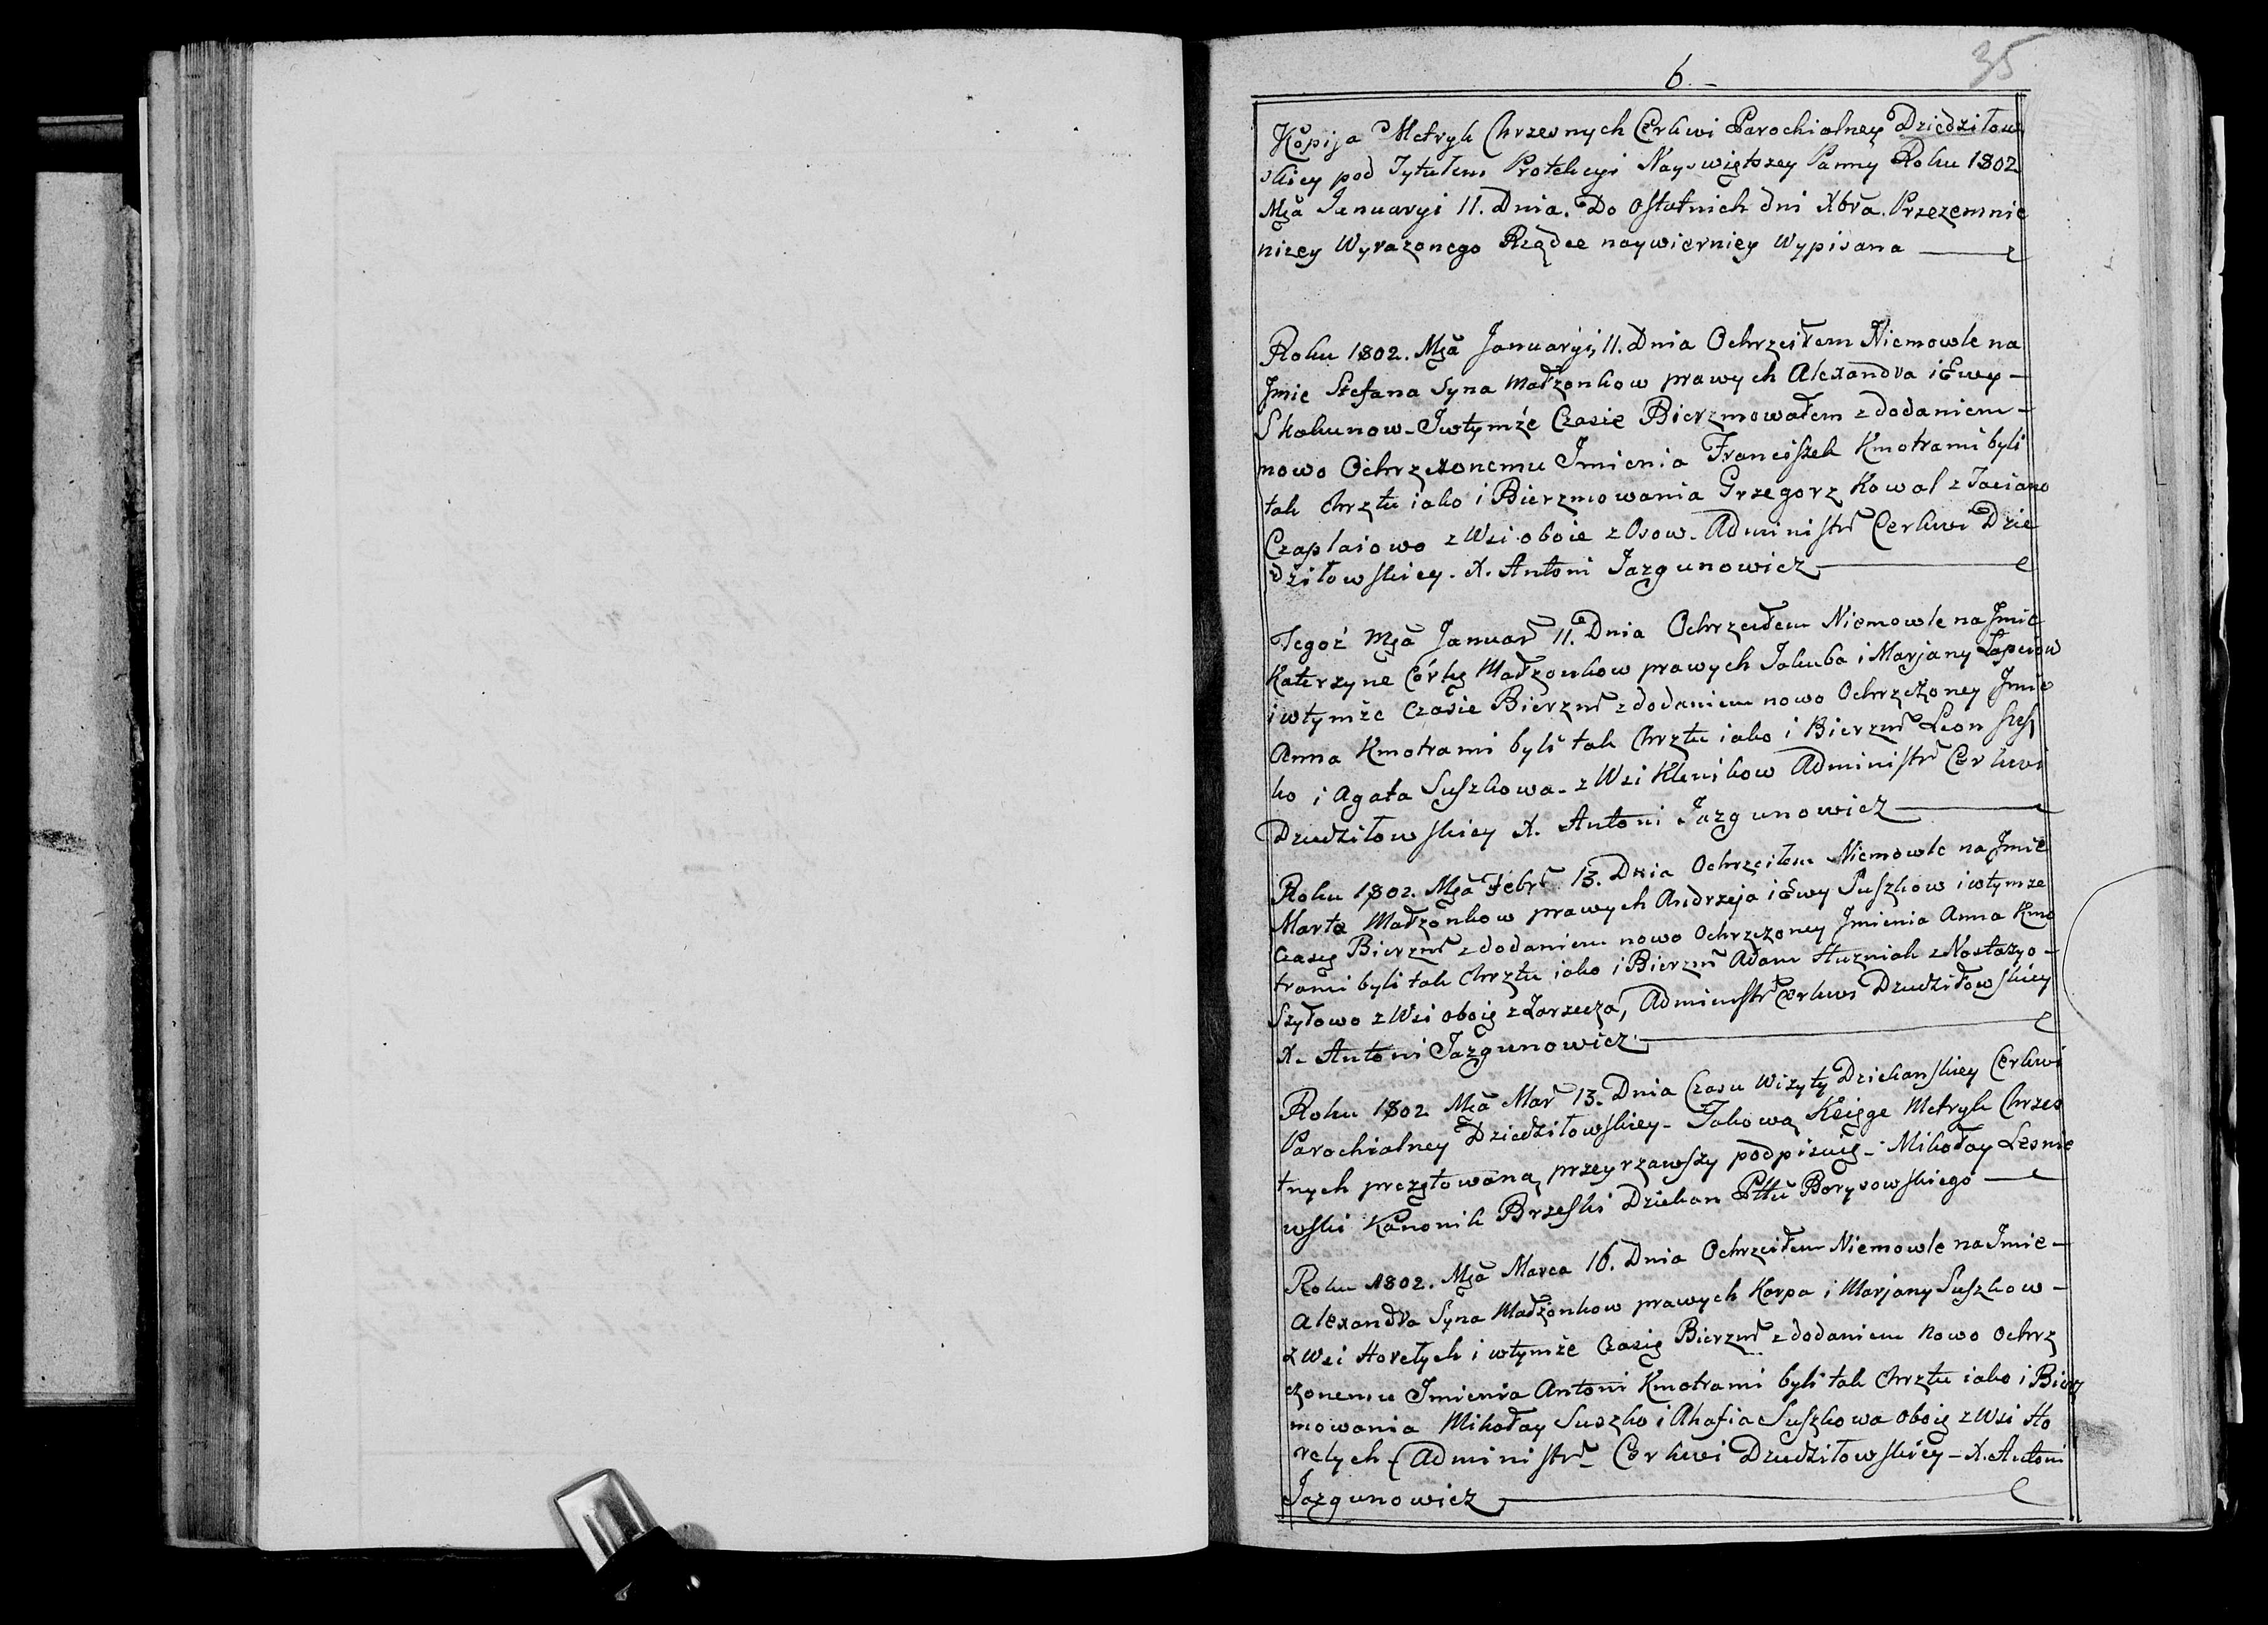 35
6.-
Kopija Metryk Chrzesnych Cerkwi Parochialney Dziedziłow
skiey pod Tytułem Protekcyi Nayswiętszey Panny Roku 1802
Mca Januaryi 11. Dnia. Do Ostatnich dni Xbra. Przezemnie
nizey Wyrazonego Rządce naywierniey Wypisana
Roku 1802. Mca Januaryi, 11. Dnia Ochrzciłem Niemowle na
Jmie Stefana Syna Małzonkow prawych Alexandra i Ewy -
Skakunow - I wtymże Czasie Bierzmowałem z dodaniem -
nowo Ochrzczonemu Imienia Franciszek Kmotrami byli
tak Chrztu iako i Bierzmowania Grzegorz Kowal z Taciano
Czaplaiowo z Wsi oboie z Osow. Administr Cerkwi Dzie
dziłowskiey. X. Antoni Jazgunowicz
Tegoż Mca Januar 11. Dnia Ochrzciłem Niemowle na Jmie
Katerzyne Córkę Małzonkow prawych Jakuba i Marjany Łapciow
i wtymże Czasie Bierzm z dodaniem nowo Ochrzczoney Jmie
Anna Kmotrami byli tak Chrztu iako i Bierzm Leon
ko i Agata Suszkowa - z Wsi Klenikow Administr Cerkwi
Dziedziłowskiey X. Antoni Jazgunowicz
Roku 1802. Mca Febr 13. Dnia Ochrzciłem Niemowle na Jmie
Marta Małzonkow prawych Andrzeja i Ewy Suszkow i wtymze
Czasie Bierzm z dodaniem nowo Ochrzczoney Jmienia Anna Kmo
trami byli tak Chrztu iako i Bierzm Adam Huzniak z Nastazyo -
Szyłowo z Wsi oboie z Zarzecza, Administr Cerkwi Dziedziłowskiey
X. Antoni Jazgunowicz
Roku 1802 Mca Mar 13. Dnia Czasu Wizyty Dziekanskiey Cerkwi
Parochialney Dziedziłowskiey - Takową Księge Metryk Chrzes
tnych przeyrzawszy podpisuię - Mikołay Lesnie
wski Kanonik Brzeski Dziekan Pttu Borysowskiego
Roku 1802. Mca Marca 16. Dnia Ochrzciłem Niemowle na Jmie -
Alexandra Syna Małzonkow prawych Karpa i Marjany Suszkow -
z Wsi Horełych i wtymże Czasie Bierzm z dodaniem Nowo Ochrz
czonemu Jmienia Antoni Kmotrami byli tak Chrztu iako i Bierz
mowania Mikołay Suszko i Ahafia Suszkowa oboie z Wsi Ho
rełych - Administr - Cerkwi Dziedziłowskiey - X. Antoni
Jazgunowicz